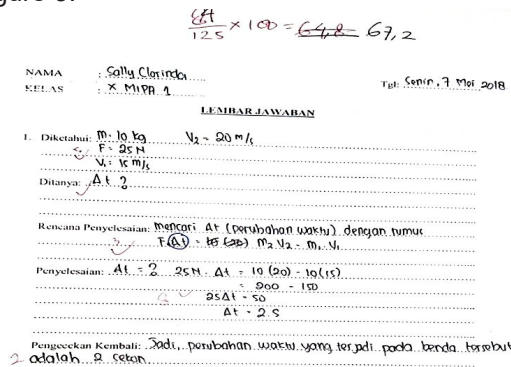 84/125 × 100 = 64,8 67,2
NAMA : Sally Clorinda
KELAS : X MIPA 1
Tgl: Senin, 7 Mei 2018
LEMBAR JAWABAN
1. Diketahui: m = 10 kg V2 = 20 m/s
F = 25 N
V1 = 15 m/s
Ditanya: Δt ?
Rencana Penyelesaian: mencari Δt (perubahan waktu) dengan rumus
F(Δt) = m2 V2 - m1 . V1
3
Penyelesaian: Δt = ? 25N . Δt = 10 (20) - 10 (15)
= 200 - 150
25Δt = 50
Δt = 2.5
Pengecekan Kembali: Jadi, perubahan waktu yang terjadi pada benda tersebut
2 adalah 2 sekon